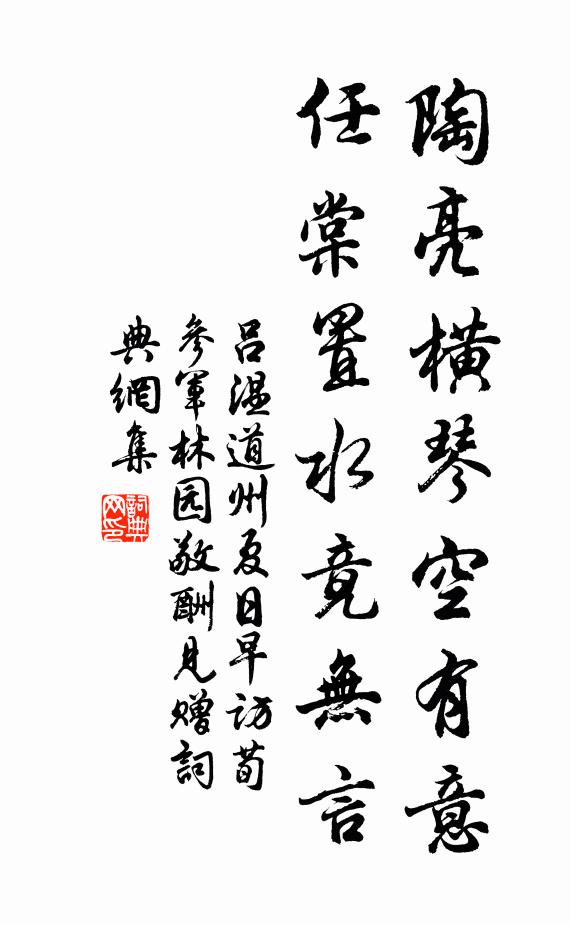 陶亮橫琴空有意
任棠置水竟無言
呂溫道州夏日早訪荀
參軍林园敬酬見贈詞
典網集
詞典
网印